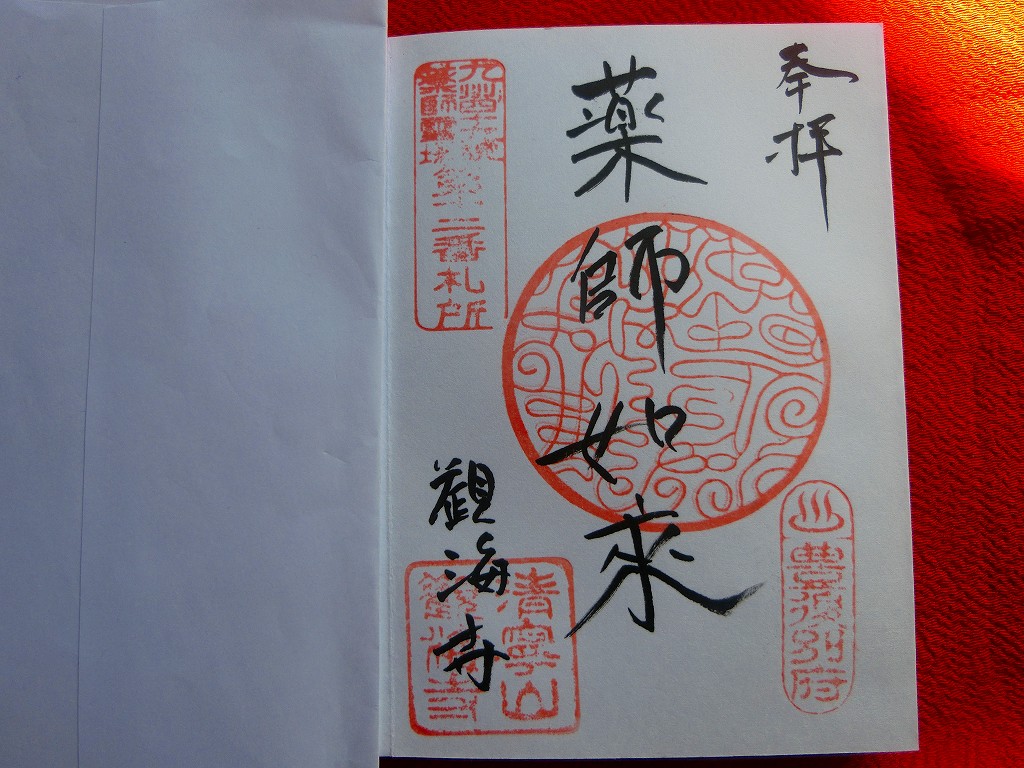 奉拝
♨豊後別府
薬師如来
九州四十九院
薬師霊場
第二番札所
觀海寺
清寧山
觀海寺